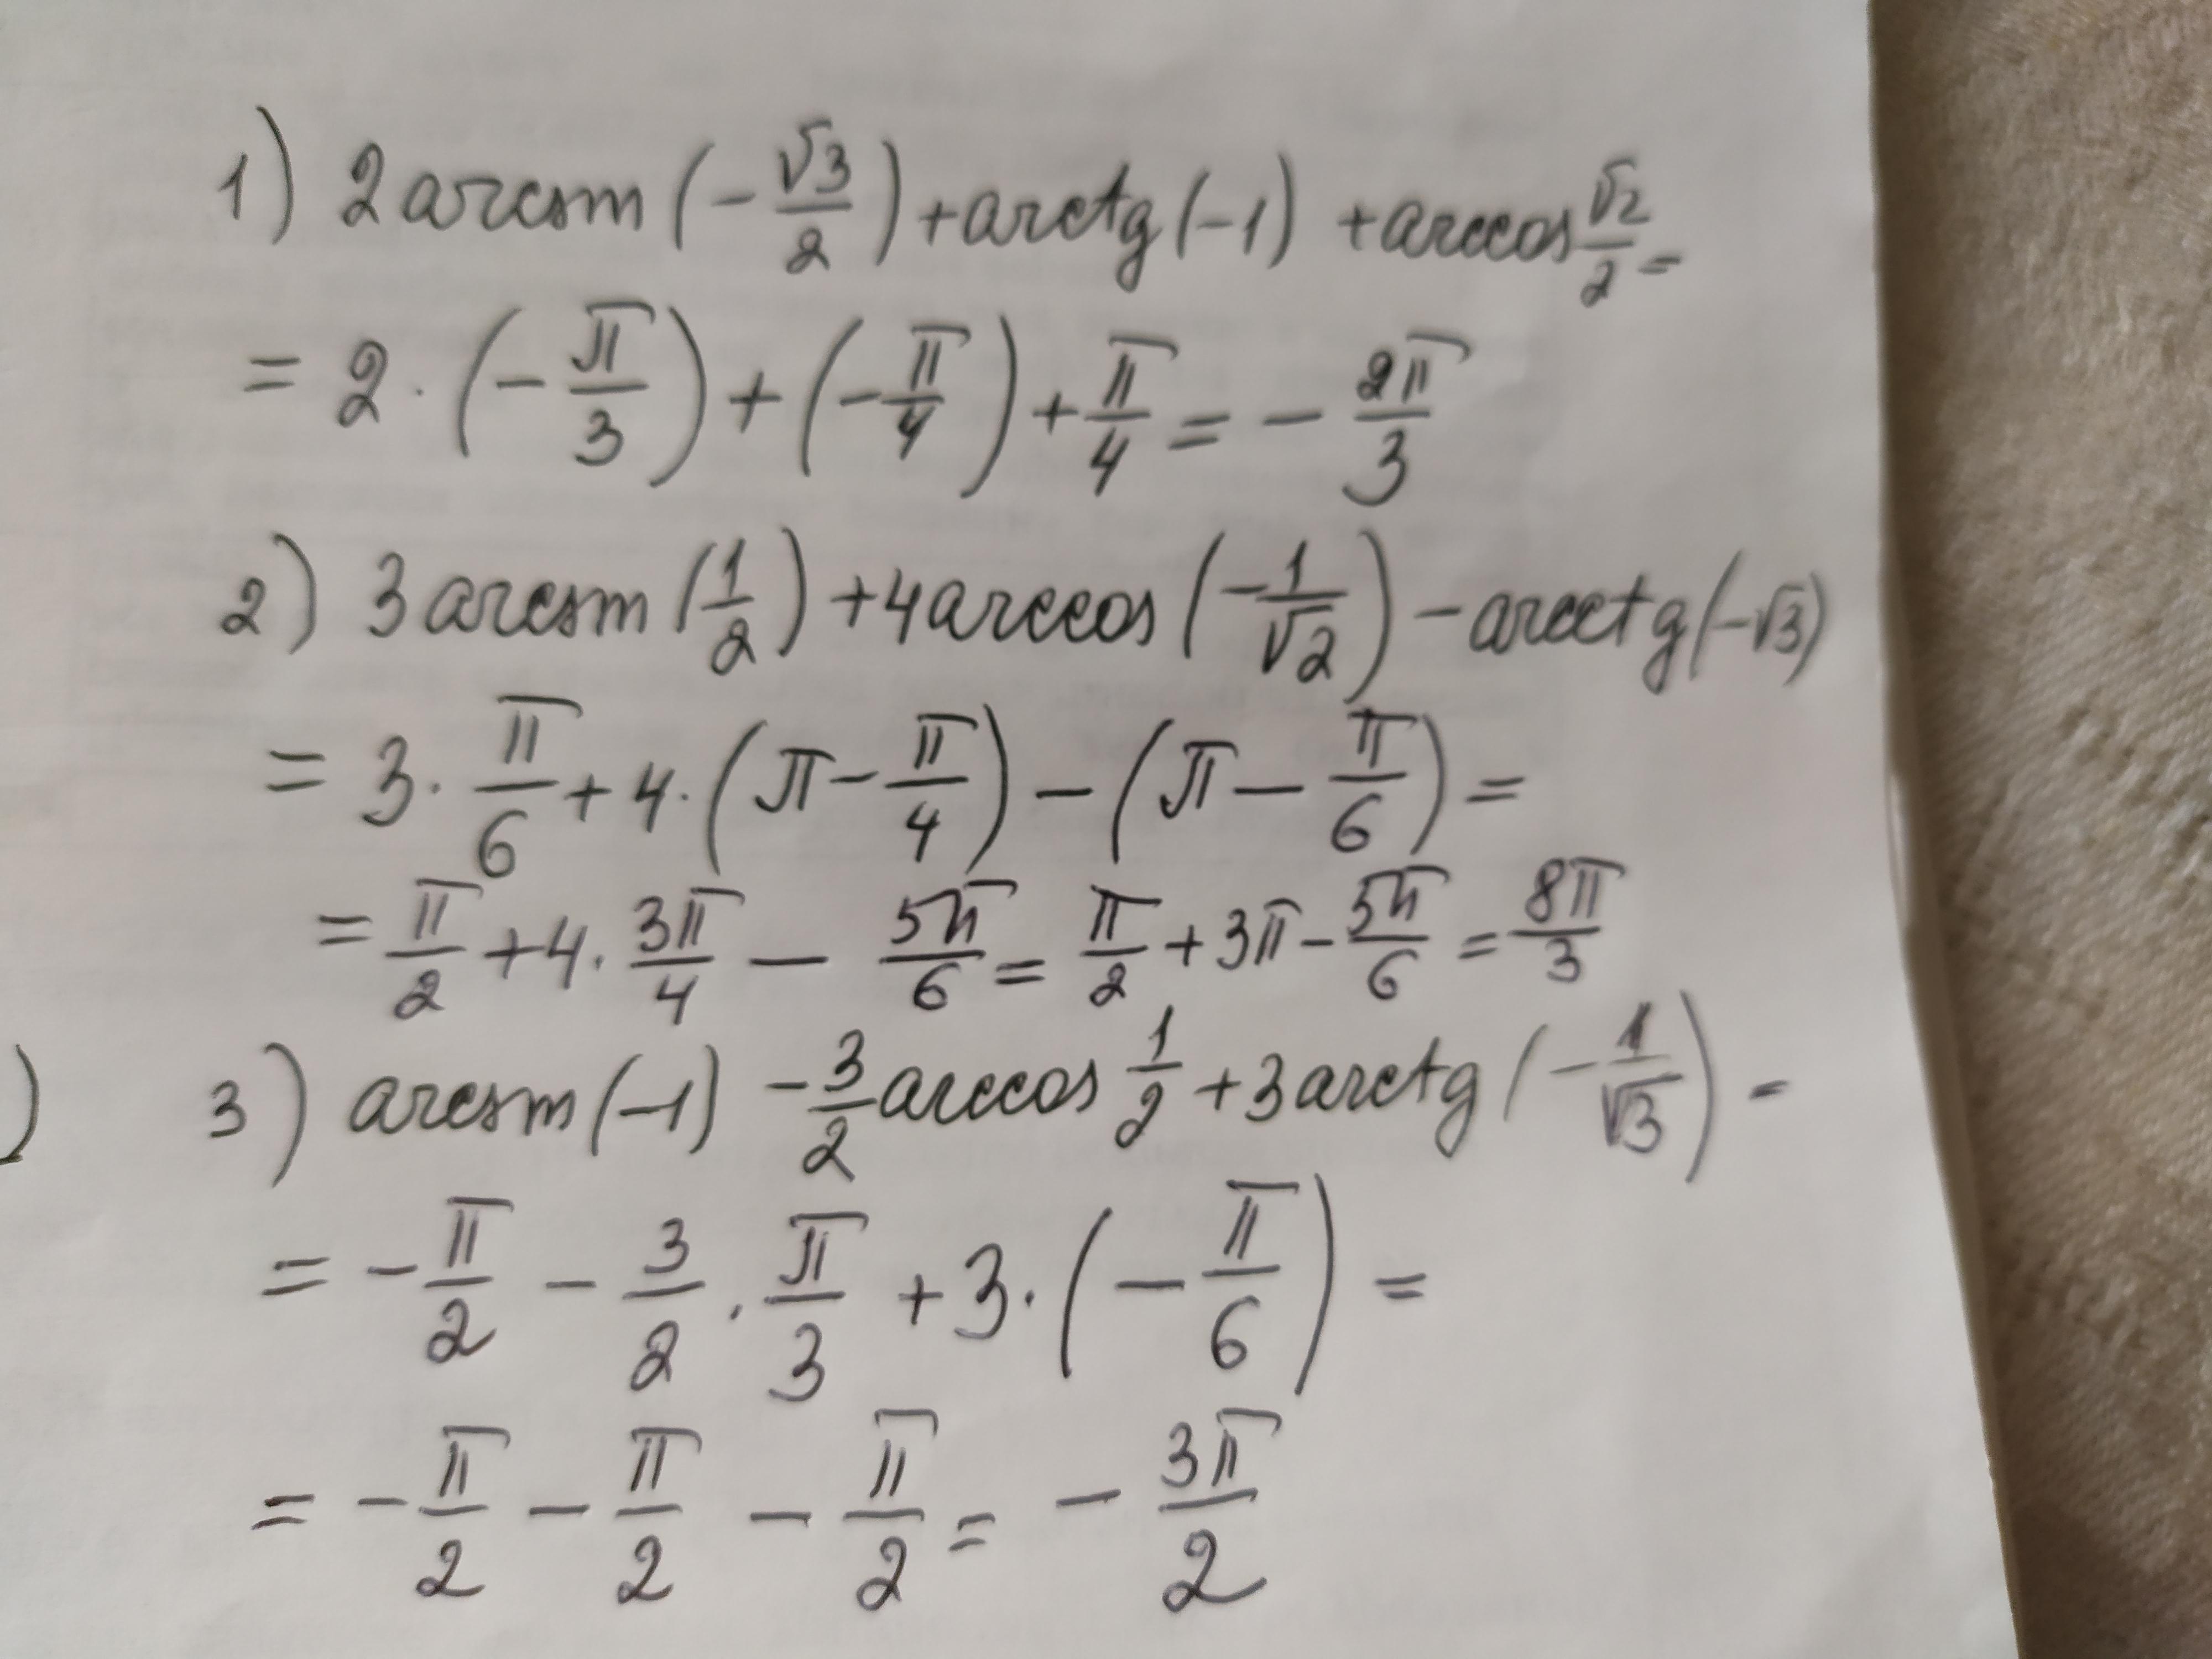 1) 2 arcsin (-√3/2) + arctg (-1) + arccos √2/2 =
= 2 · (-π/3) + (-π/4) + π/4 = - 2π/3
2) 3 arcsin (1/2) + 4 arccos (-1/√2) - arcctg (-√3)
= 3 · π/6 + 4 · (π - π/4) - (π - π/6) =
= π/2 + 4 · 3π/4 - 5π/6 = π/2 + 3π - 5π/6 = 8π/3
) 3) arcsin (-1) - 3/2 arccos 1/2 + 3 arctg (-1/√3) =
= - π/2 - 3/2 · π/3 + 3 · (-π/6) =
= - π/2 - π/2 - π/2 = - 3π/2